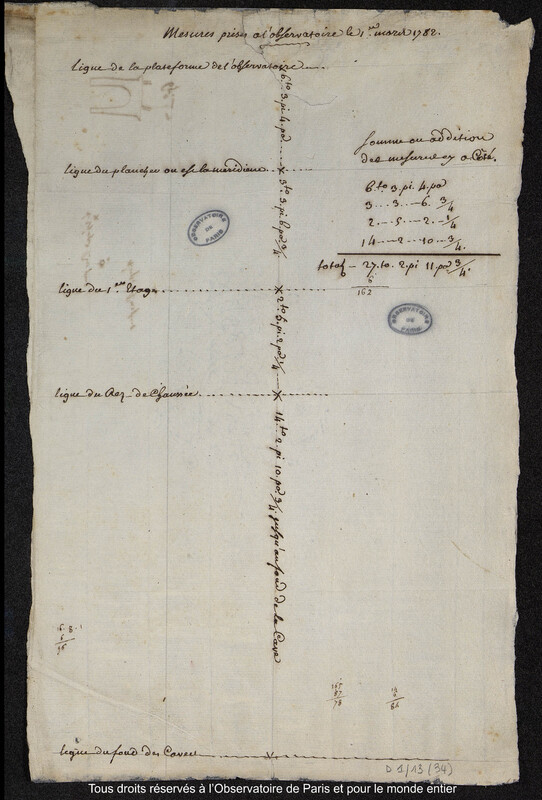 Mesures prises a l'observatoire le 1er mars 1782.
ligne de la plateforme de l'observatoire
6.to 3.pi 4.po
Somme ou addition
des mesures cy a Côté.
ligne du plancher ou est la meridienne
3to 3.pi 6.po 3/4
6.to 3.pi. 4.po
3...3...6. 3/4
2...5...2. 1/4
14...2...10. 3/4.
total - 27.to. 2.pi 11.po 3/4.
6
162
OBSERVATOIRE DE PARIS
ligne du 1er Etage
OBSERVATOIRE DE PARIS
ligne du Rez-de-Chaussée
14.to 2.pi 10.po 3/4. jusqu'au fond de la Cave
ligne du fond des Caves
D 1/13 (34)
Tous droits réservés à l'Observatoire de Paris et pour le monde entier